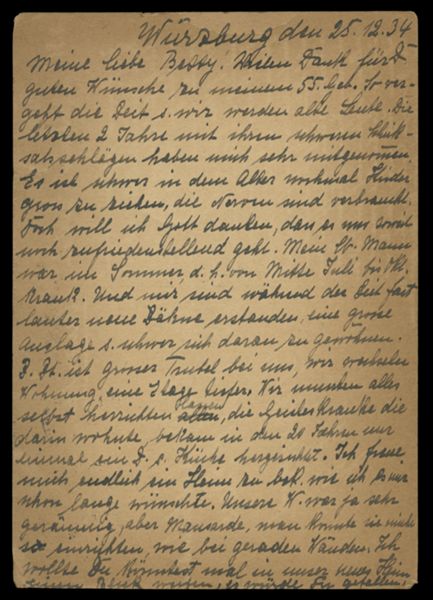 Würzburg den 25.12.34
Meine liebe Bessy. Vielen Dank für D.
guten Wünsche zu meinem 55. Geb. So ver-
geht die Zeit u. wir werden alte Leute. Die
letzten 2 Jahre mit ihren schweren Schick-
salsschlägen haben mich sehr mitgenommen.
Es ist schwer in dem Alter nochmal Kinder
gross zu ziehen, die Nerven sind verbraucht.
Doch will ich Gott danken, dass es uns soweit
noch zufriedenstellend geht. Mein lb. Mann
war im Sommer d. h. von Mitte Juli bis Okt.
krank. Und mir sind während der Zeit fast
lauter neue Zähne erstanden, eine grosse
Auslage u. schwer sich daran zu gewöhnen.
Z. Zt. ist grosser Trubel bei uns, wir wechseln
Wohnung, eine Etage tiefer. Wir mussten alles
selbst herrichten lassen, die Geisteskranke die
darin wohnte, bekam in den 20 Jahren nur
einmal ein Z. u. Küche hergerichtet. Ich freue
mich endlich ein Heim zu bek. wie ich es mir
schon lange wünschte. Unsere W. war ja sehr
geräumig, aber Mansarde, man konnte sie nicht
so einrichten, wie bei geraden Wänden. Ich
wollte Du könntest mal in unser neues Heim
einen Blick werfen, es würde Dir gefallen,